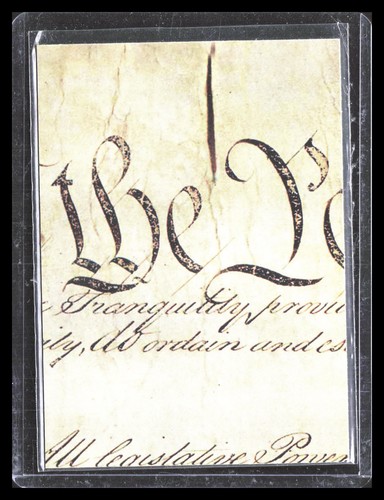 the Pe
c Tranquility, provid
ity, do ordain and es
All legislative Power